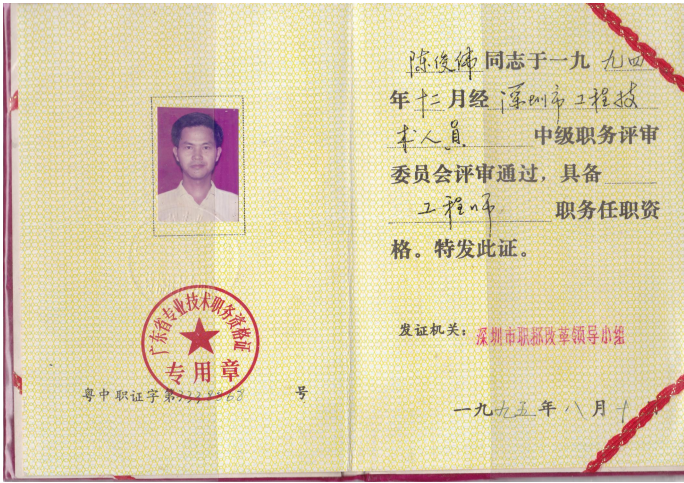 广东省专业技术职务资格证
专用章
粤中职证字第 号
陈俊伟同志于一九九四
年十二月经深圳市工程技
术人员中级职务评审
委员会评审通过，具备
工程师职务任职资
格。特发此证。
发证机关：深圳市职称改革领导小组
一九九五年八月十日